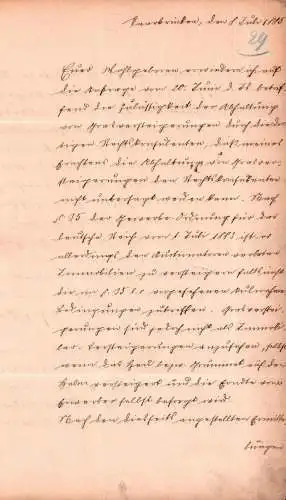 Saarbrücken, den 8. Juli 1885
29
Euer Wohlgeboren erwidern ich auf
die Anfrage vom 20. Juni d. Js. betref
fend die Zulässigkeit der Abhaltung
von Grasversteigerungen durch die dor
tigen Rechtskonsulenten, daß meines
Erachtens die Abhaltung von Grasver
steigerungen den Rechtskonsulenten
nicht untersagt werden kann. Nach
§ 35 der Gewerbe-Ordnung für das
deutsche Reich vom 1. Juli 1883 ist es
allerdings den Auktionatoren verboten
Immobilien zu versteigern falls nicht
die im § angesehenen Ausnahme
bedingungen zutreffen. Grasverstei
gerungen sind jedoch nicht als Immobi
lar-Versteigerungen anzusehen, selbst
wenn das Heu bezw. Grummet auf dem
Halm versteigert und die Ernte vom
Erwerber selbst besorgt wird.
Nach den diesseits angestellten Ermitte
lungen